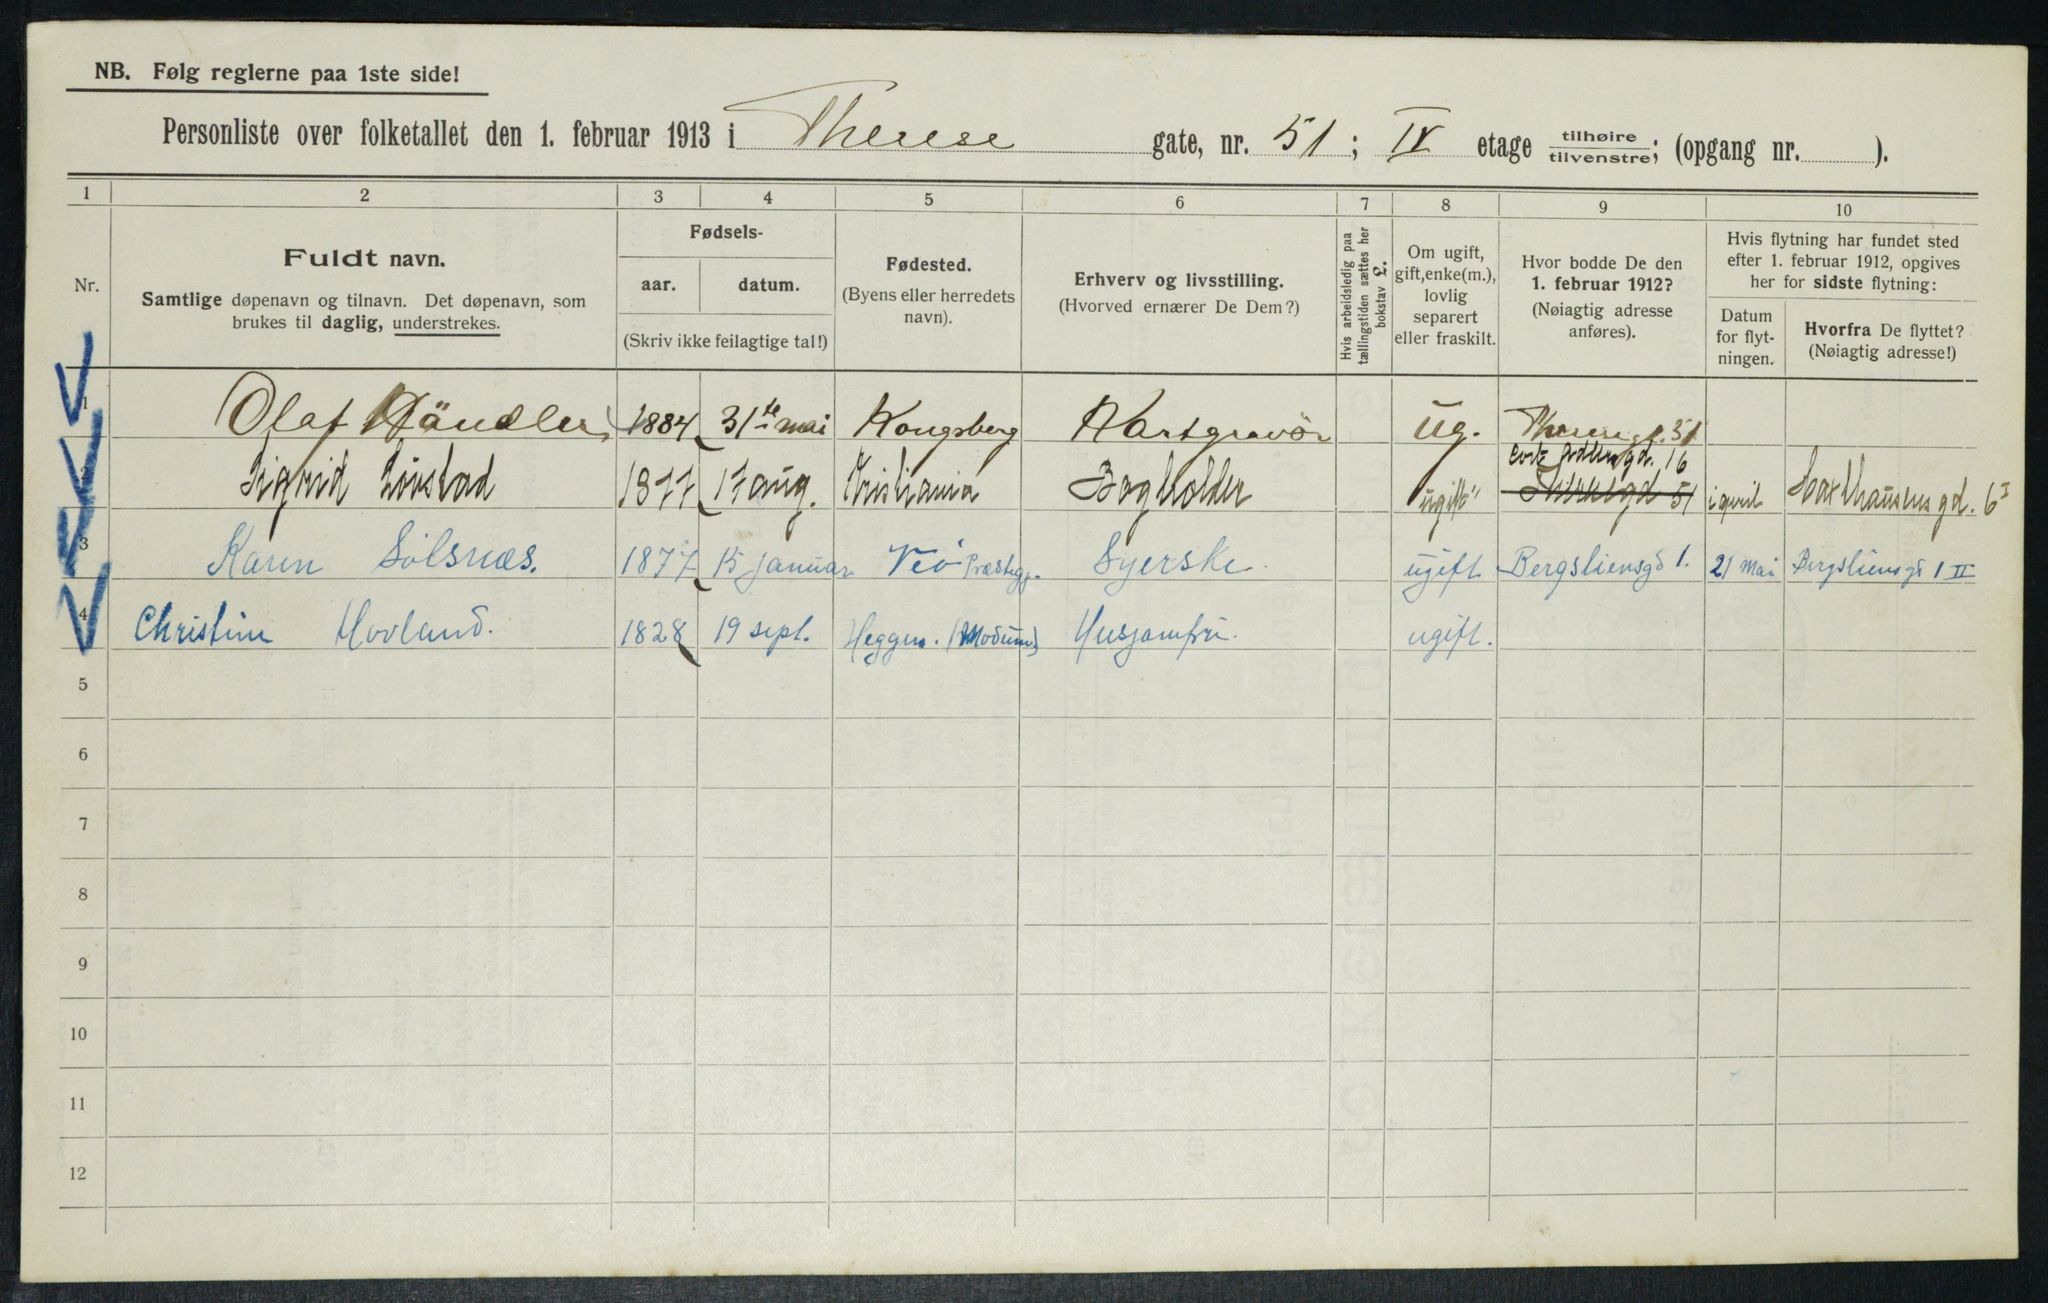 NB. Følg reglerne paa 1ste side!
Personliste over folketallet den 1. februar 1913 i Therese gate, nr. 51; IV etage tilhøire/tilvenstre; (opgang nr. ).
1 2 3 4 5 6 7 8 9 10
Nr.
Fuldt navn.
Samtlige døpenavn og tilnavn. Det døpenavn, som
brukes til daglig, understrekes.
Fødsels-
aar. datum.
(Skriv ikke feilagtige tal!)
Fødested.
(Byens eller herredets
navn).
Erhverv og livsstilling.
(Hvorved ernærer De Dem?)
Hvis arbeidsledig paa
tællingstiden sættes her
bokstav L.
Om ugift,
gift, enke(m.),
lovlig
separert
eller fraskilt.
Hvor bodde De den
1. februar 1912?
(Nøiagtig adresse
anføres).
Hvis flytning har fundet sted
efter 1. februar 1912, opgives
her for sidste flytning:
Datum
for flyt-
ningen.
Hvorfra De flyttet?
(Nøiagtig adresse!)
1 Olaf Händler 1884 31te mai Kongsberg Kartgravör ug. Theresegt. 51
Cort Adlersgd. 16
2 Sigrid Lövstad 1877 17 aug. Kristiania Bogholder ugift" Theresegd 51 i april Haxthausensgd. 6 I
3 Karen Sölsnæs. 1877 15 januar Veö Præstegj. Syerske ugift Bergsliensgd 1. 21 mai Bergsliensgd 1 II
4 Christine Hovland. 1828 19 sept. Heggen. (Modum) Husjomfru. ugift.
5
6
7
8
9
10
11
12